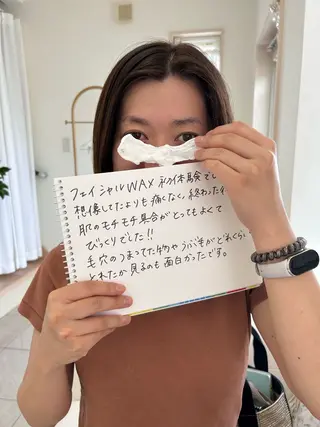 フェイシャルWAX 初体験でし
想像してたよりも痛くなく、終わった
肌のモチモチ具合がとってもよくて
びっくりでした!!
毛穴のつまってた物やうぶ毛がどれくらい
とれたか見るのも面白かったです。